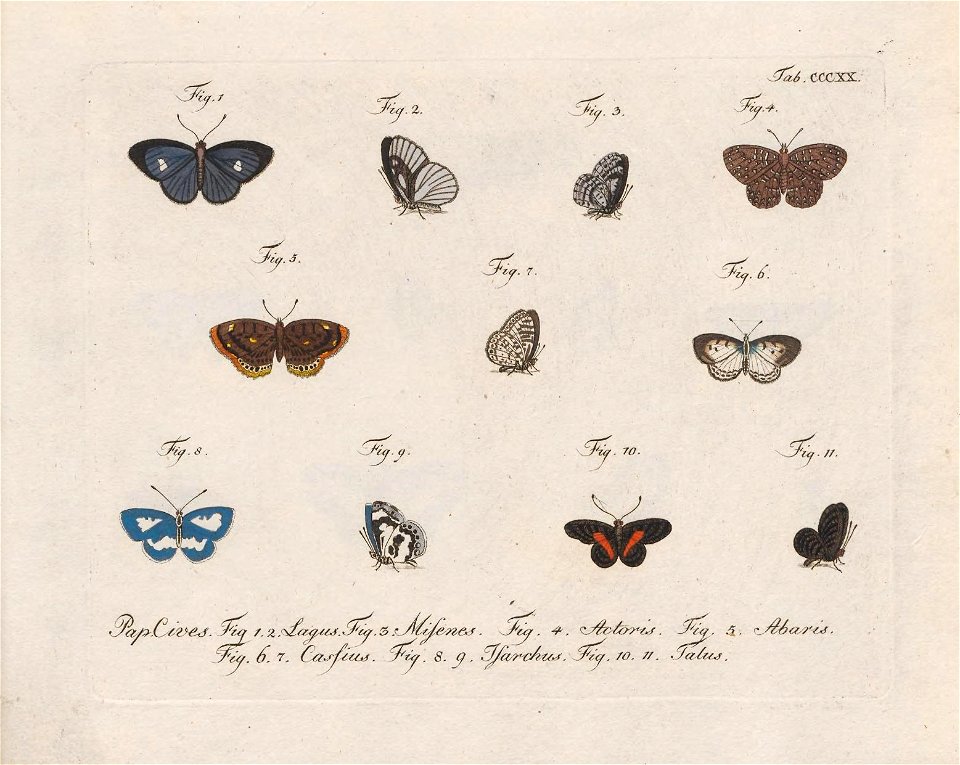 Tab. CCCXX.
Fig. 1
Fig. 2.
Fig. 3.
Fig. 4.
Fig. 5.
Fig. 7.
Fig. 6.
Fig. 8.
Fig. 9.
Fig. 10.
Fig. 11.
Pap. Cives. Fig 1.2. Lagus. Fig. 3. Miſenes. Fig. 4. Actoris. Fig. 5. Abaris.
Fig. 6. 7. Caſſius. Fig. 8. 9. Iſarchus. Fig. 10. 11. Talus.